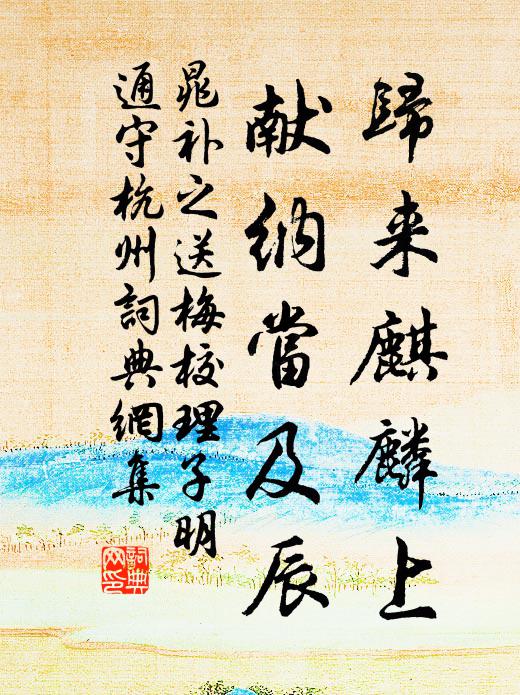 歸来麒麟上
献納當及辰
晁补之送梅校理子明
通守杭州詞典網集
詞典网印